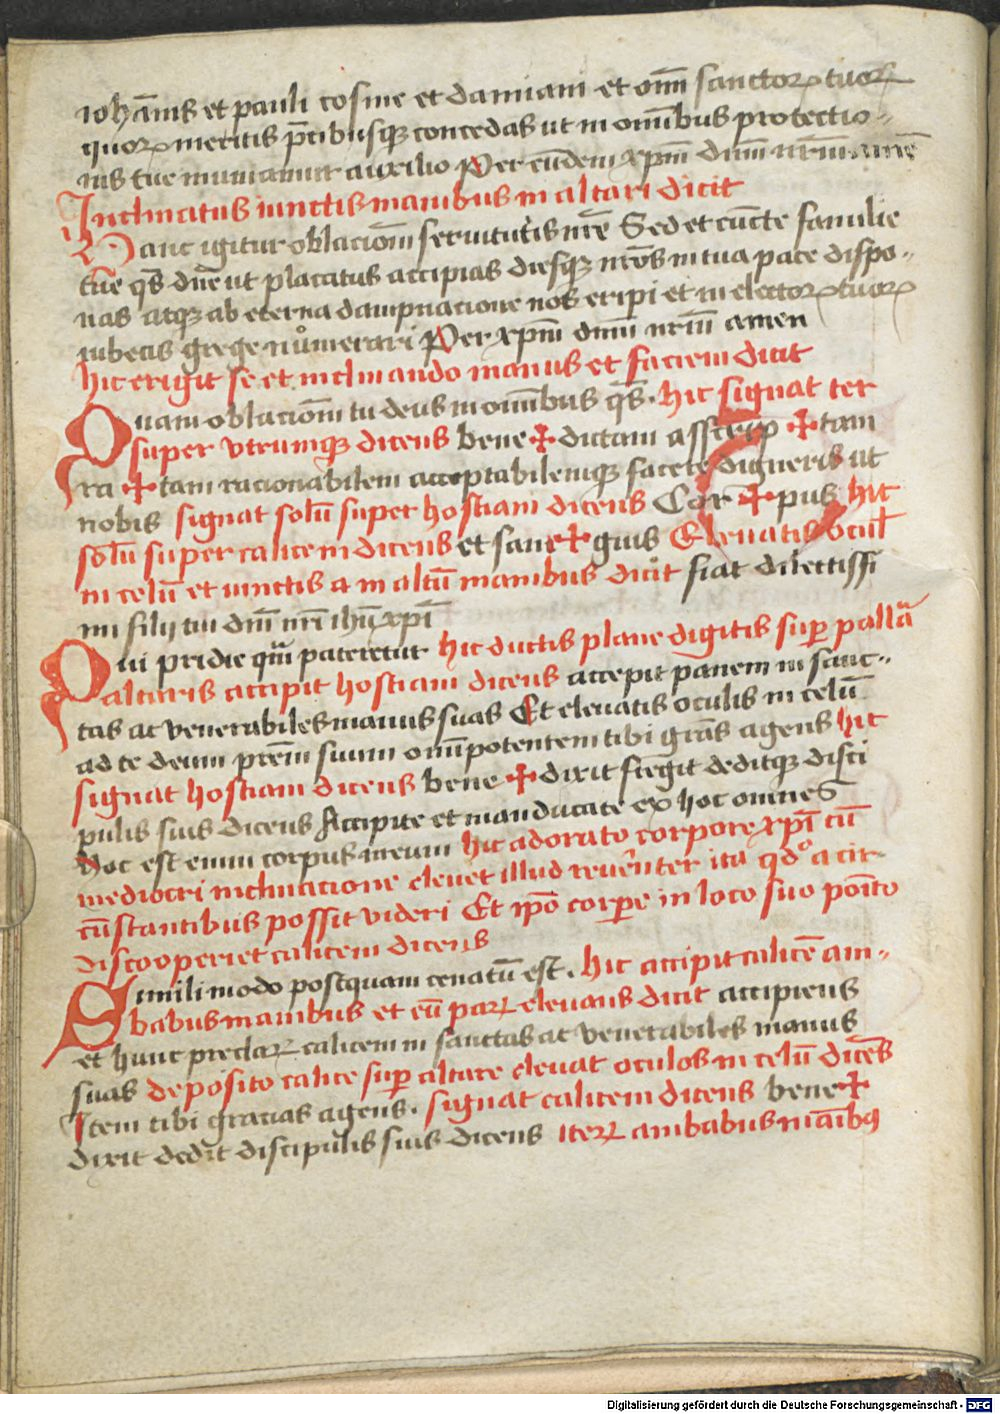 ioha̅nis et pauli cosme et damiani et om̅ sanctoꝝ tuoꝝ
quoꝝ meritis p̅cibusqꝫ concedas ut in om̅ibus protectio-
nis tue muniamur auxilio Per eu̅dem xp̅m dn̅m nr̅m ame̅
Inclinatus iunctis manibus in altari dicit
Hanc igitur oblacio̅m seruitutis nr̅e Sed et cu̅cte familie
tue qs̅ dn̅e ut placatus accipias diesqꝫ nr̅os in tua pace dispo-
nas atqꝫ ab eterna dampnacione nos eripi et in electoꝝ tuoꝝ
iubeas grege nůmerari Per xp̅m dn̅m nr̅m amen
hic erigit se et inclinando manus et faciem dicit
Quam oblacio̅m tu deus in om̅ibus qs̅. hic signat ter
super vtrumqꝫ dicens bene ✠ dictam asscrip ✠ tam
ra ✠ tam racionabilem acceptabilemqꝫ facere digneris ut
nobis signat solu̅ super hostiam dicens Cor ✠ pus hic
solu̅ super calicem dicens et san ✠ guis Eleuatis ocul̅
in celu̅ et iunctis a in altu̅ manibus dicit fiat dilectissi
mi filij tui dn̅i nr̅i ih̅u xp̅i
Qui pridie qua̅ pateretur hic ductis plane digitis sup̲ palla̅
altaris accipit hostiam dicens accepit panem in sanc-
tas ac venerabiles manus suas Et eleuatis oculis in celu̅
ad te deum pre̅m suum om̅ipotentem tibi gra̅s agens hic
signat hostiam dicens bene ✠ dixit fregit deditqꝫ disci
pulis suis dicens Accipite et manducate ex hoc omnes
Hoc est enim corpus meum hic adorato corpore xp̅i cu̅
mediocri inclinacione eleuet illud reuerenter ita qd̊ a cir-
cu̅stantibus possit videri Et ip̅o corpe̲ in loco suo poi̅to
discooperiet calicem dicens
Simili modo postquam cenatu̅ est. hic accipit calice̅ am-
babus manibus et eu̅ paꝝ eleuans dicit accipiens
et hunc preclaꝝ calicem in sanctas ac venerabiles manus
suas deposito calice sup̲ altare eleuat oculos in celu̅ dice̅s
Item tibi gracias agens. signat calicem dicens bene ✠
dixit dedit discipulis suis dicens iteꝝ ambabus ma̅ibꝯ
Digitalisierung gefördert durch die Deutsche Forschungsgemeinschaft - DFG